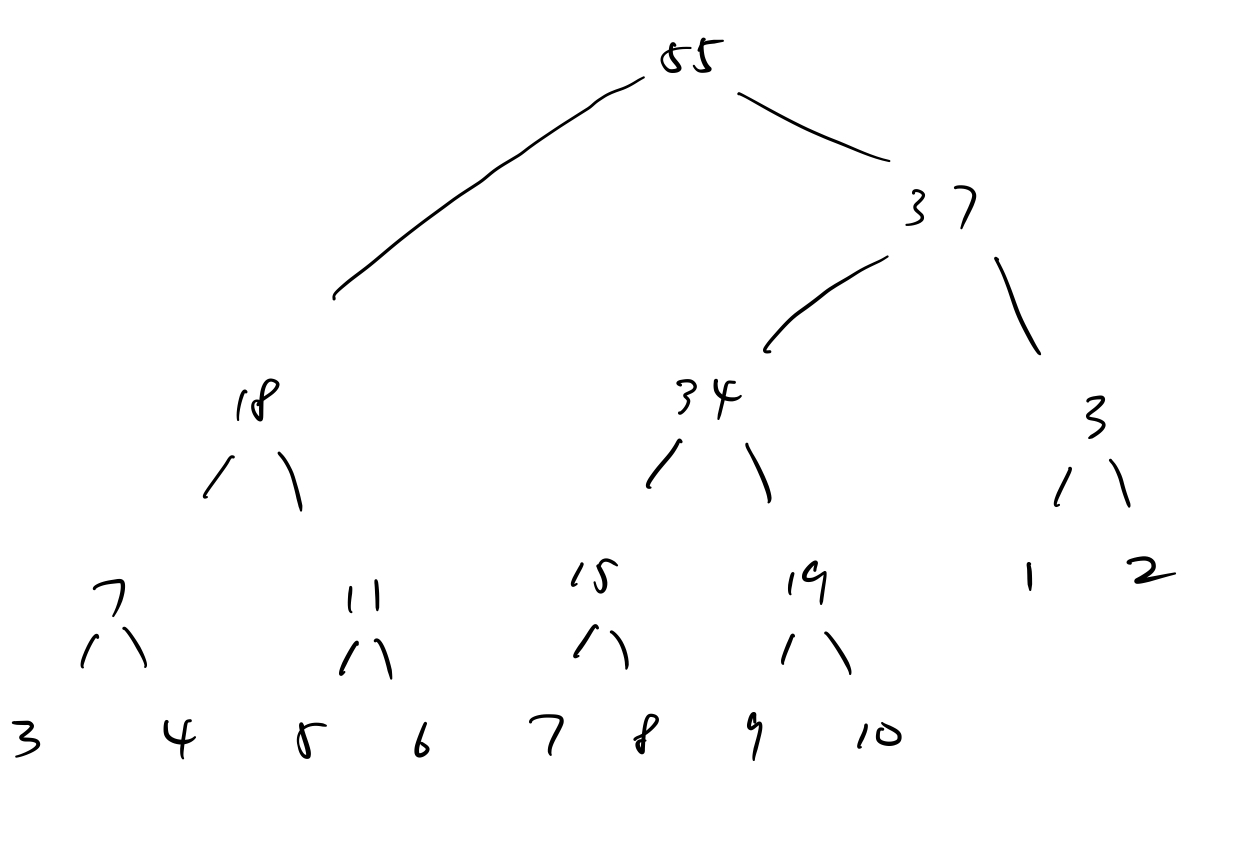 55
37
18 34 3
7 11 15 19 1 2
3 4 5 6 7 8 9 10